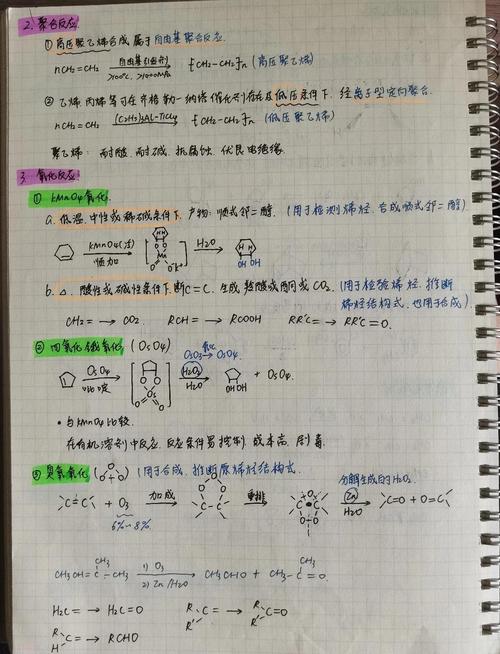 2. 聚合反应.
① 高压聚乙烯合成 属于 自由基聚合反应.
nCH₂=CH₂ 自由基引发剂 >100℃, >100MPa → -[CH₂-CH₂]-n (高压聚乙烯)
② 乙烯、丙烯等可在齐格勒-纳塔催化剂存在及低压条件下, 经离子型定向聚合.
nCH₂=CH₂ (C₂H₅)₃Al-TiCl₄ → -[CH₂-CH₂]-n (低压聚乙烯)
聚乙烯: 耐酸, 耐碱, 抗腐蚀, 优良电绝缘.
3. 氧化反应.
① KMnO₄氧化.
a. 低温, 中性或稀碱条件下. 产物: 顺式邻二醇. (用于检测烯烃, 合成顺式邻二醇)
KMnO₄(冷) 顺加 → [ H H O O Mn O O⁻K⁺ ] H₂O → H H OH OH
b. △, 酸性或碱性条件下. 断C=C. 生成 羧酸或酮或CO₂. (用于检验烯烃, 推断
烯烃结构式, 也用于合成)
CH₂= → CO₂. RCH= → RCOOH RR'C= → RR'C=O.
② 四氧化锇氧化. (OsO₄)
OsO₃ → OsO₄.
OsO₄ 吡啶 → [ O O Os O O ] H₂O₂ H₂O → OH OH + OsO₃.
• 与KMnO₄比较.
在有机溶剂中反应, 反应条件易控制, 成本高, 剧毒.
③ 臭氧氧化 (O O O) (用于合成, 推断原烯烃结构式.
分解生成的H₂O₂.
C=C + O₃ 加成 → O O O C-C 重排 → O C C O-O Zn H₂O → C=O + O=C
6%~8%
CH₃CH=C(CH₃)-CH₃ 1) O₃ 2) Zn/H₂O → CH₃CHO + CH₃-C(CH₃)=O.
H₂C= → H₂C=O R R' C= → R R' C=O
R H C= → RCHO